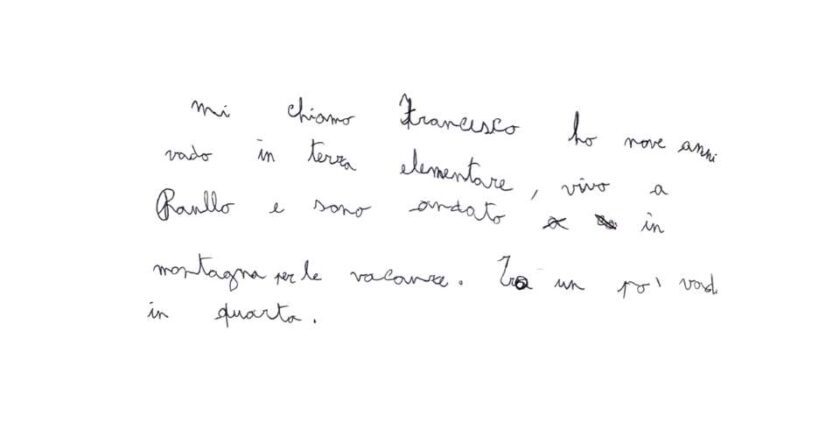 mi chiamo Francesco ho nove anni
vado in terza elementare, vivo a
e sono andato in
montagna per le vacanze. Tra un po' vado
in quarta.